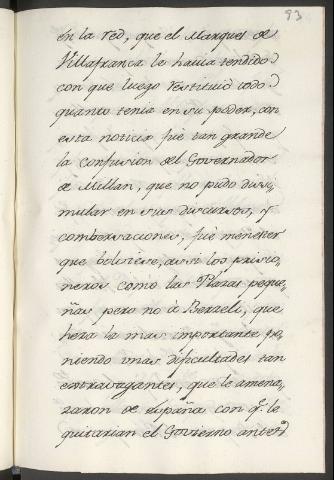 93
en la red, que el Marques de
Villafranca le havia tendido
con que luego restituiò todo
quanto tenia en su poder, con
esta noticia fuè tan grande
la confusion del Governador
de Millan, que no pudo disi-
mular en sus discursos, y
combersaciones, fuè menester
que bolviese, assi los prisio-
neros como las Plazas peque-
ñas pero no à Berzeli, que
hera la mas importante po-
niendo unas dificultades tan
extravagantes, que le amena-
zaron de España con q.e le
quitarian el Govierno antes